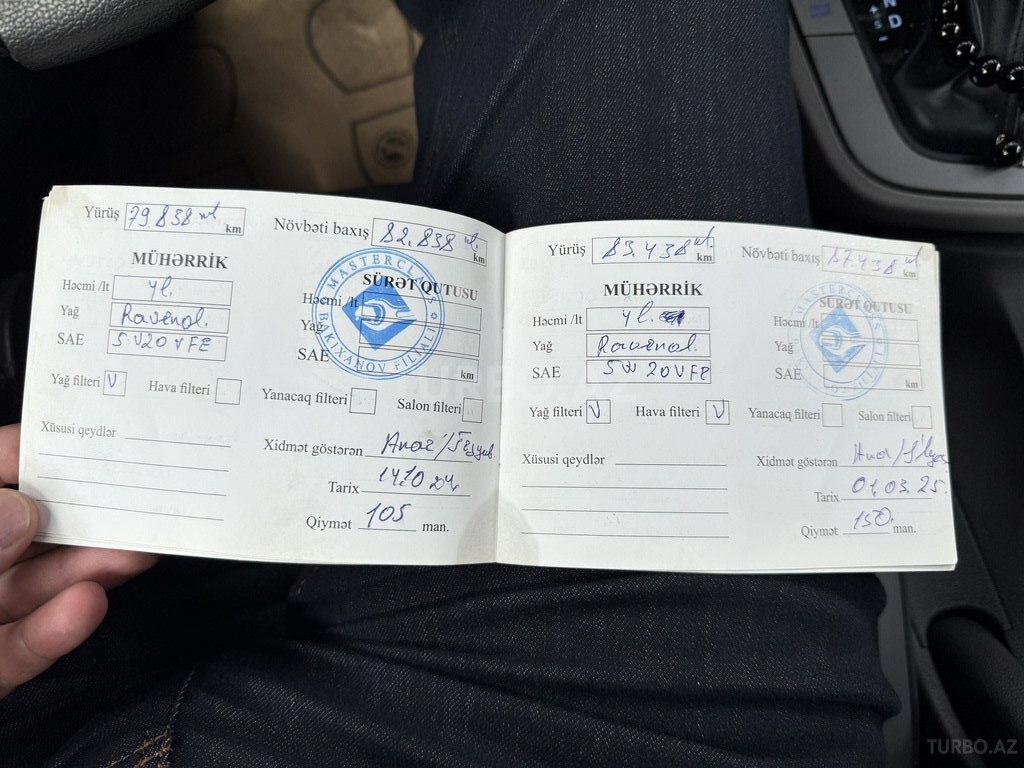 Yürüş 79.838 ml km
Növbəti baxış 82.838 ml. km
MÜHƏRRİK
SÜRƏT QUTUSU
Həcmi /lt 4l.
Həcmi /lt
Yağ Ravenol.
Yağ
SAE 5W20 VFE
SAE
km
Yağ filteri V
Hava filteri
Yanacaq filteri
Salon filteri
Xüsusi qeydlər
Xidmət göstərən
Tarix 14.10 24.
Qiymət 105 man.
MASTERCLASS
BAKIXANOV FILIALI
Yürüş 83.438 ml. km
Növbəti baxış 87.438 ml km
MÜHƏRRİK
SÜRƏT QUTUSU
Həcmi /lt 4l.
Həcmi /lt
Yağ Ravenol.
Yağ
SAE 5W 20 VFE
SAE
km
Yağ filteri V
Hava filteri V
Yanacaq filteri
Salon filteri
Xüsusi qeydlər
Xidmət göstərən
Tarix 01.03.25.
Qiymət 150. man.
D
S
TURBO.AZ